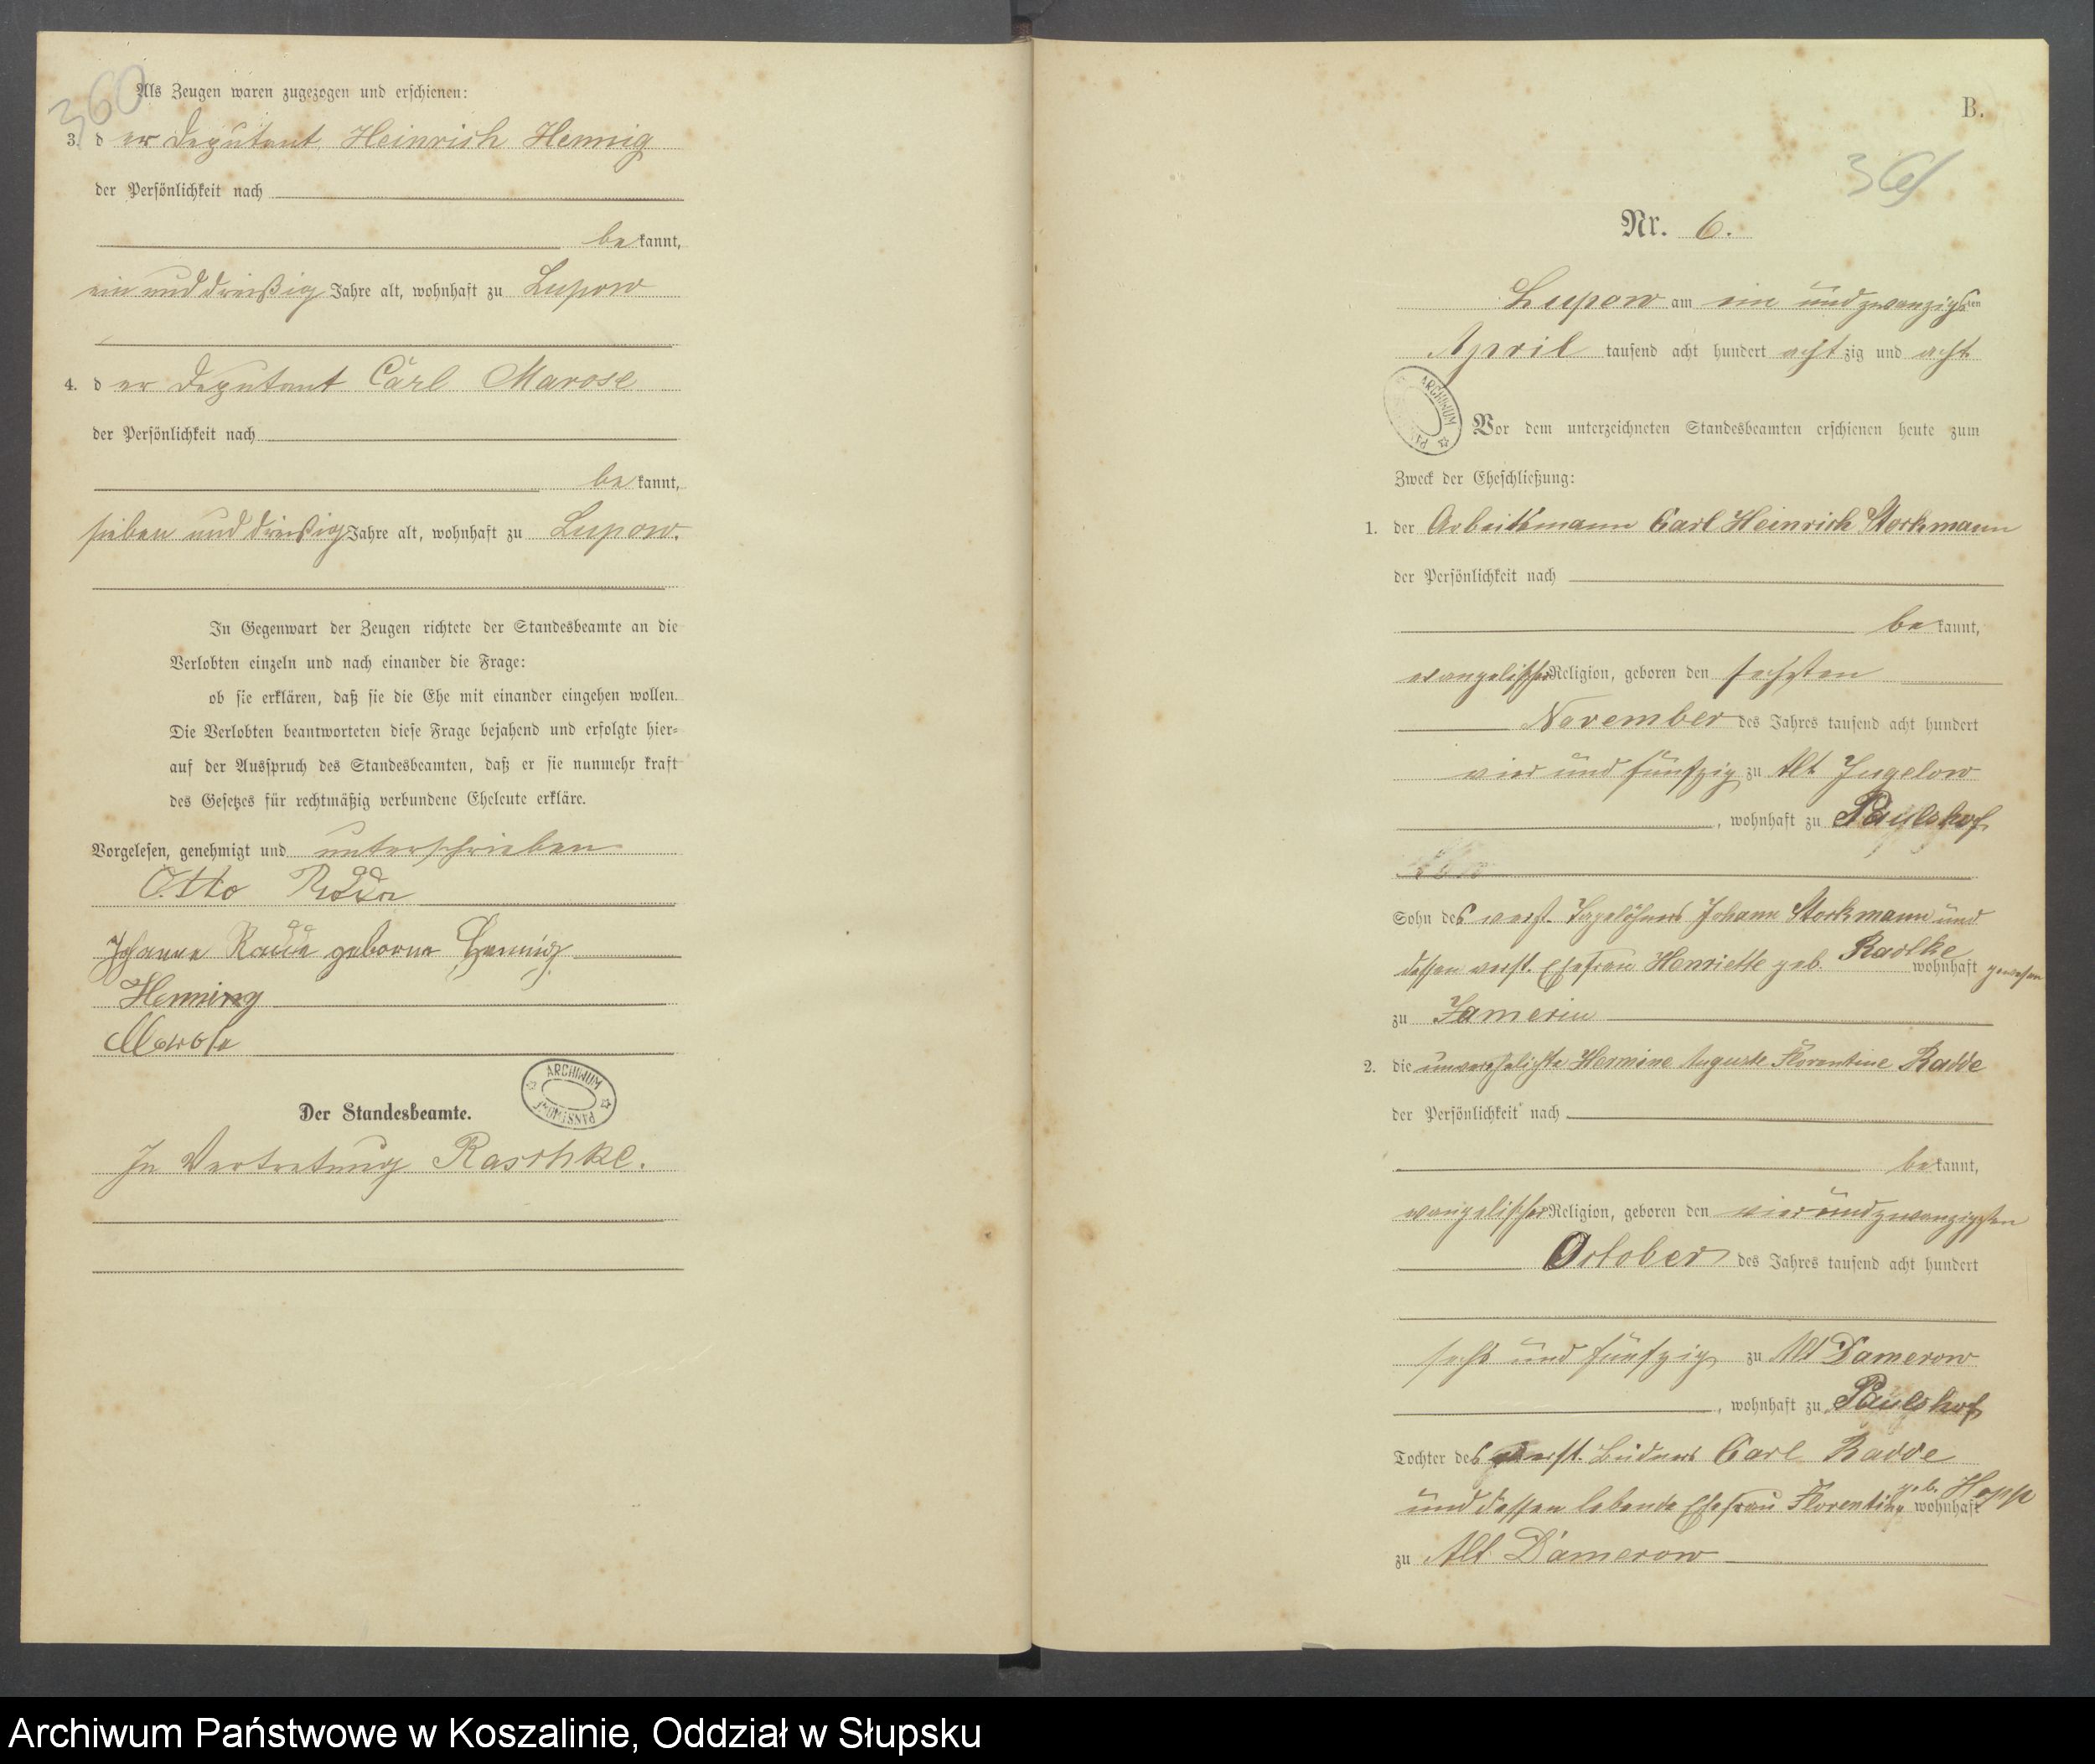 360
Als Zeugen waren zugezogen und erschienen:
3. der Deputant Heinrich Hennig
der Persönlichkeit nach
bekannt,
ein und dreißig Jahre alt, wohnhaft zu Lupow
4. der Deputant Carl Marose
der Persönlichkeit nach
bekannt,
sieben und dreißig Jahre alt, wohnhaft zu Lupow.
In Gegenwart der Zeugen richtete der Standesbeamte an die
Verlobten einzeln und nach einander die Frage:
ob sie erklären, daß sie die Ehe mit einander eingehen wollen.
Die Verlobten beantworteten diese Frage bejahend und erfolgte hier-
auf der Ausspruch des Standesbeamten, daß er sie nunmehr kraft
des Gesetzes für rechtmäßig verbundene Eheleute erkläre.
Vorgelesen, genehmigt und unterschrieben
Otto Radde
Johanne Radde geborne Hennig
Hennig
Marose
ARCHIWUM PAŃSTWOWE
Der Standesbeamte.
In Vertretung Raschke.
B.
361
Nr. 6.
Lupow am ein und zwanzigsten
April tausend acht hundert achtzig und acht
ARCHIWUM
Vor dem unterzeichneten Standesbeamten erschienen heute zum
Zweck der Eheschließung:
1. der Arbeitsmann Carl Heinrich Storkmann
der Persönlichkeit nach
bekannt,
evangelischer Religion, geboren den sechsten
November des Jahres tausend acht hundert
vier und fünfzig zu Alt Jugelow
, wohnhaft zu Paulshof
Sohn des verst. Tagelöhners Johann Storkmann und
dessen verst. Ehefrau Henriette geb. Radtke wohnhaft gewesen
zu Jamerin
2. die unverehelichte Hermine Auguste Florentine Radde
der Persönlichkeit nach
bekannt,
evangelischer Religion, geboren den vier und zwanzigsten
October des Jahres tausend acht hundert
sechs und fünfzig zu Alt Damerow
, wohnhaft zu Paulshof
Tochter des verst. Büdners Carl Radde
und dessen lebende Ehefrau Florentine geb. Hopp wohnhaft
zu Alt Damerow
Archiwum Państwowe w Koszalinie, Oddział w Słupsku